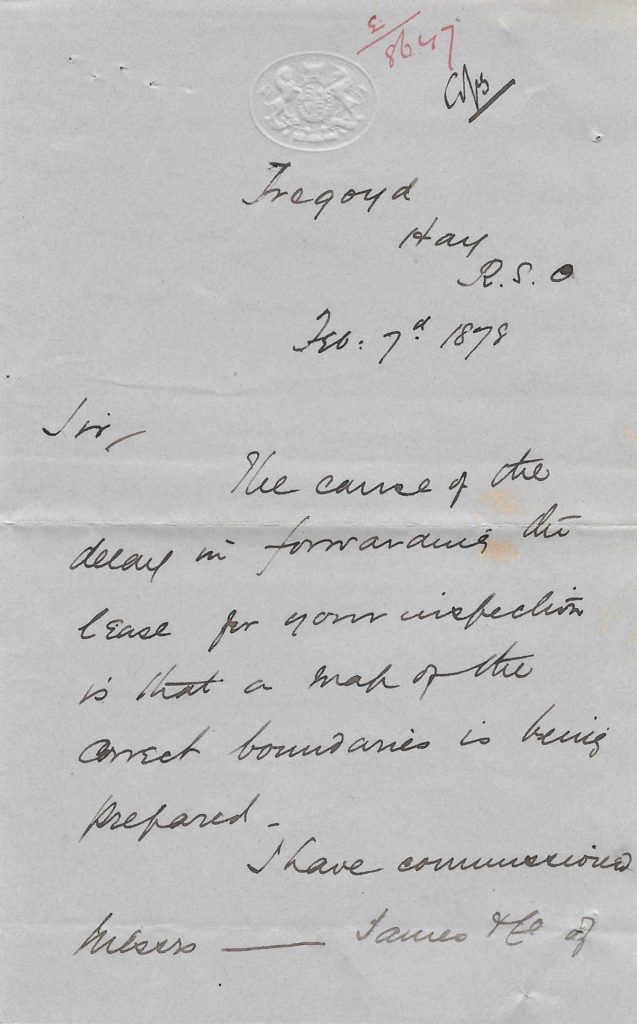 E/8647
Copy
Tregoyd
Hay
R.S.O
Feb: 7d 1878
Sir,
The cause of the
delay in forwarding the
lease for your inspection
is that a map of the
correct boundaries is being
prepared_
I have commissioned
Messrs —— James & Co of